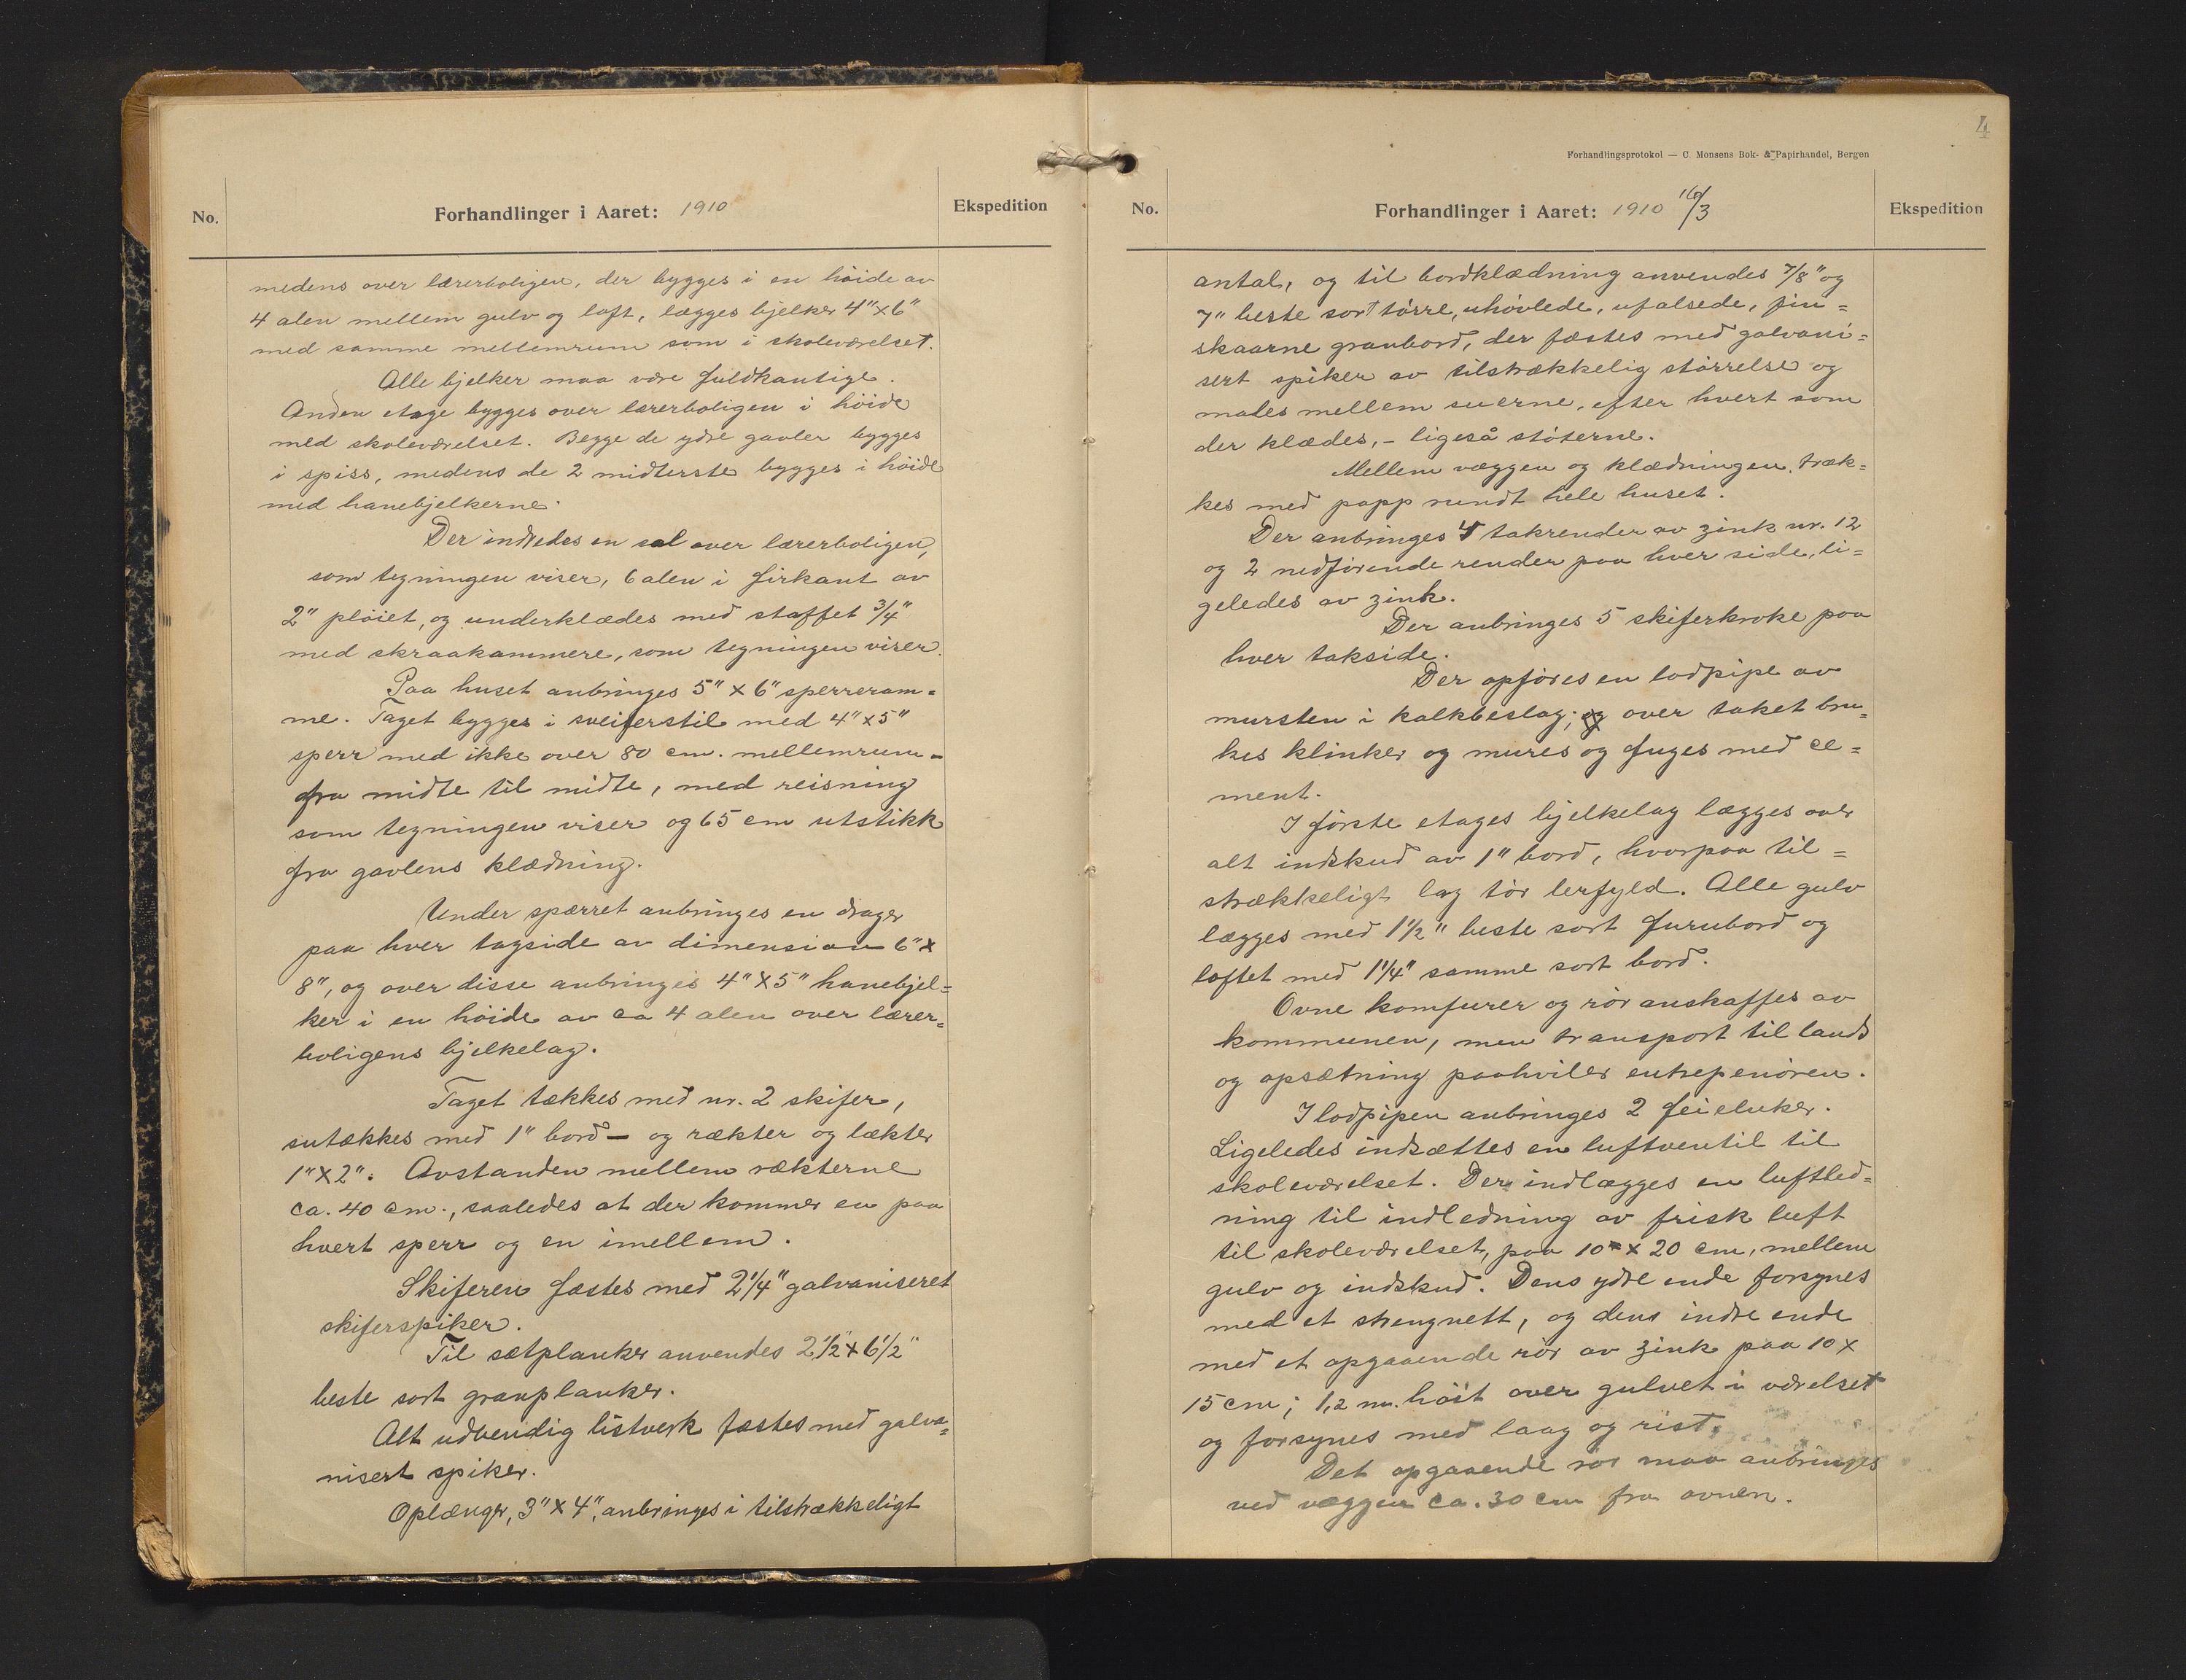 No.
Forhandlinger i Aaret: 1910
Ekspedition
medens over lærerboligen, der bygges i en høide av
4 alen mellem gulv og loft, lægges bjelker 4" x 6"
med samme mellemrum som i skoleværelset.
Alle bjelker maa være fuldkantige.
Anden etage bygges over lærerboligen i høide
med skoleværelset. Begge de ydre gavler bygges
i spiss, medens de 2 midterste bygges i høide
med hanebjelkerne.
Der indredes en sal over lærerboligen,
som tegningen viser, 6 alen i firkant av
2" pløiet, og underklædes med staffet 3/4"
med skraakammere, som tegningen viser.
Paa huset anbringes 5" x 6" sperreram=
me. Taget bygges i sveiserstil med 4" x 5"
sperr med ikke over 80 cm. mellemrum -
fra midte til midte, med reisning
som tegningen viser og 65 cm utstikk
fra gavlens klædning.
Under spærret anbringes en drager
paa hver tagside av dimension 6" x
8", og over disse anbringes 4" x 5" hanebjel=
ker i en høide av ca 4 alen over lærer=
boligens bjelkelag.
Taget tækkes med nr. 2 skifer,
sutækkes med 1" bord - og rækter og lækter
1" x 2". Avstanden mellem rækterne
ca. 40 cm., saaledes at der kommer en paa
hvert sperr og en imellem.
Skiferen fæstes med 2 1/4" galvaniseret
skiferspiker.
Til sætplanker anvendes 2 1/2" x 6 1/2"
beste sort granplanker.
Alt udvendig listverk fæstes med galva=
nisert spiker.
Oplænger, 3" x 4", anbringes i tilstrækkeligt
4
Forhandlingsprotokol — C. Monsens Bok- & Papirhandel, Bergen
No.
Forhandlinger i Aaret: 1910 16/3
Ekspedition
antal, og til bordklædning anvendes 7/8" og
7" beste sort tørre, uhøvlede, ufalsede, fin=
skaarne granbord, der fæstes med galvani=
sert spiker av tilstrækkelig størrelse og
males mellem suerne, efter hvert som
der klædes, - ligeså støterne.
Mellem væggen og klædningen træk=
kes med papp rundt hele huset.
Der anbringes 4 takrender av zink nr. 12
og 2 nedførende render paa hver side, li=
geledes av zink.
Der anbringes 5 skiferkroke paa
hver takside.
Der opføres en lodpipe av
mursten i kalkbeslag; og over taket bru=
kes klinker og mures og fuges med ce=
ment.
I første etages bjelkelag lægges over
alt indskud av 1" bord, hvorpaa til=
strækkeligt lag tør lerfyld. Alle gulv
lægges med 1 1/2" beste sort furubord og
loftet med 1 1/4" samme sort bord.
Ovne komfurer og rør anskaffes av
kommunen, men transport til lands
og opsætning paahviler entrepenøren.
I lodpipen anbringes 2 feieluker.
Ligeledes indsættes en luftventil til
skoleværelset. Der indlægges en luftled=
ning til indledning av frisk luft
til skoleværelset, paa 10 x 20 cm, mellem
gulv og indskud. Dens ydre ende forsynes
med et strengnett, og dens indre ende
med et opgaaende rør av zink paa 10 x
15 cm; 1,2 m. høit over gulvet i værelset
og forsynes med laag og rist.
Det opgaaende rør maa anbringes
ved væggen ca. 30 cm fra ovnen.